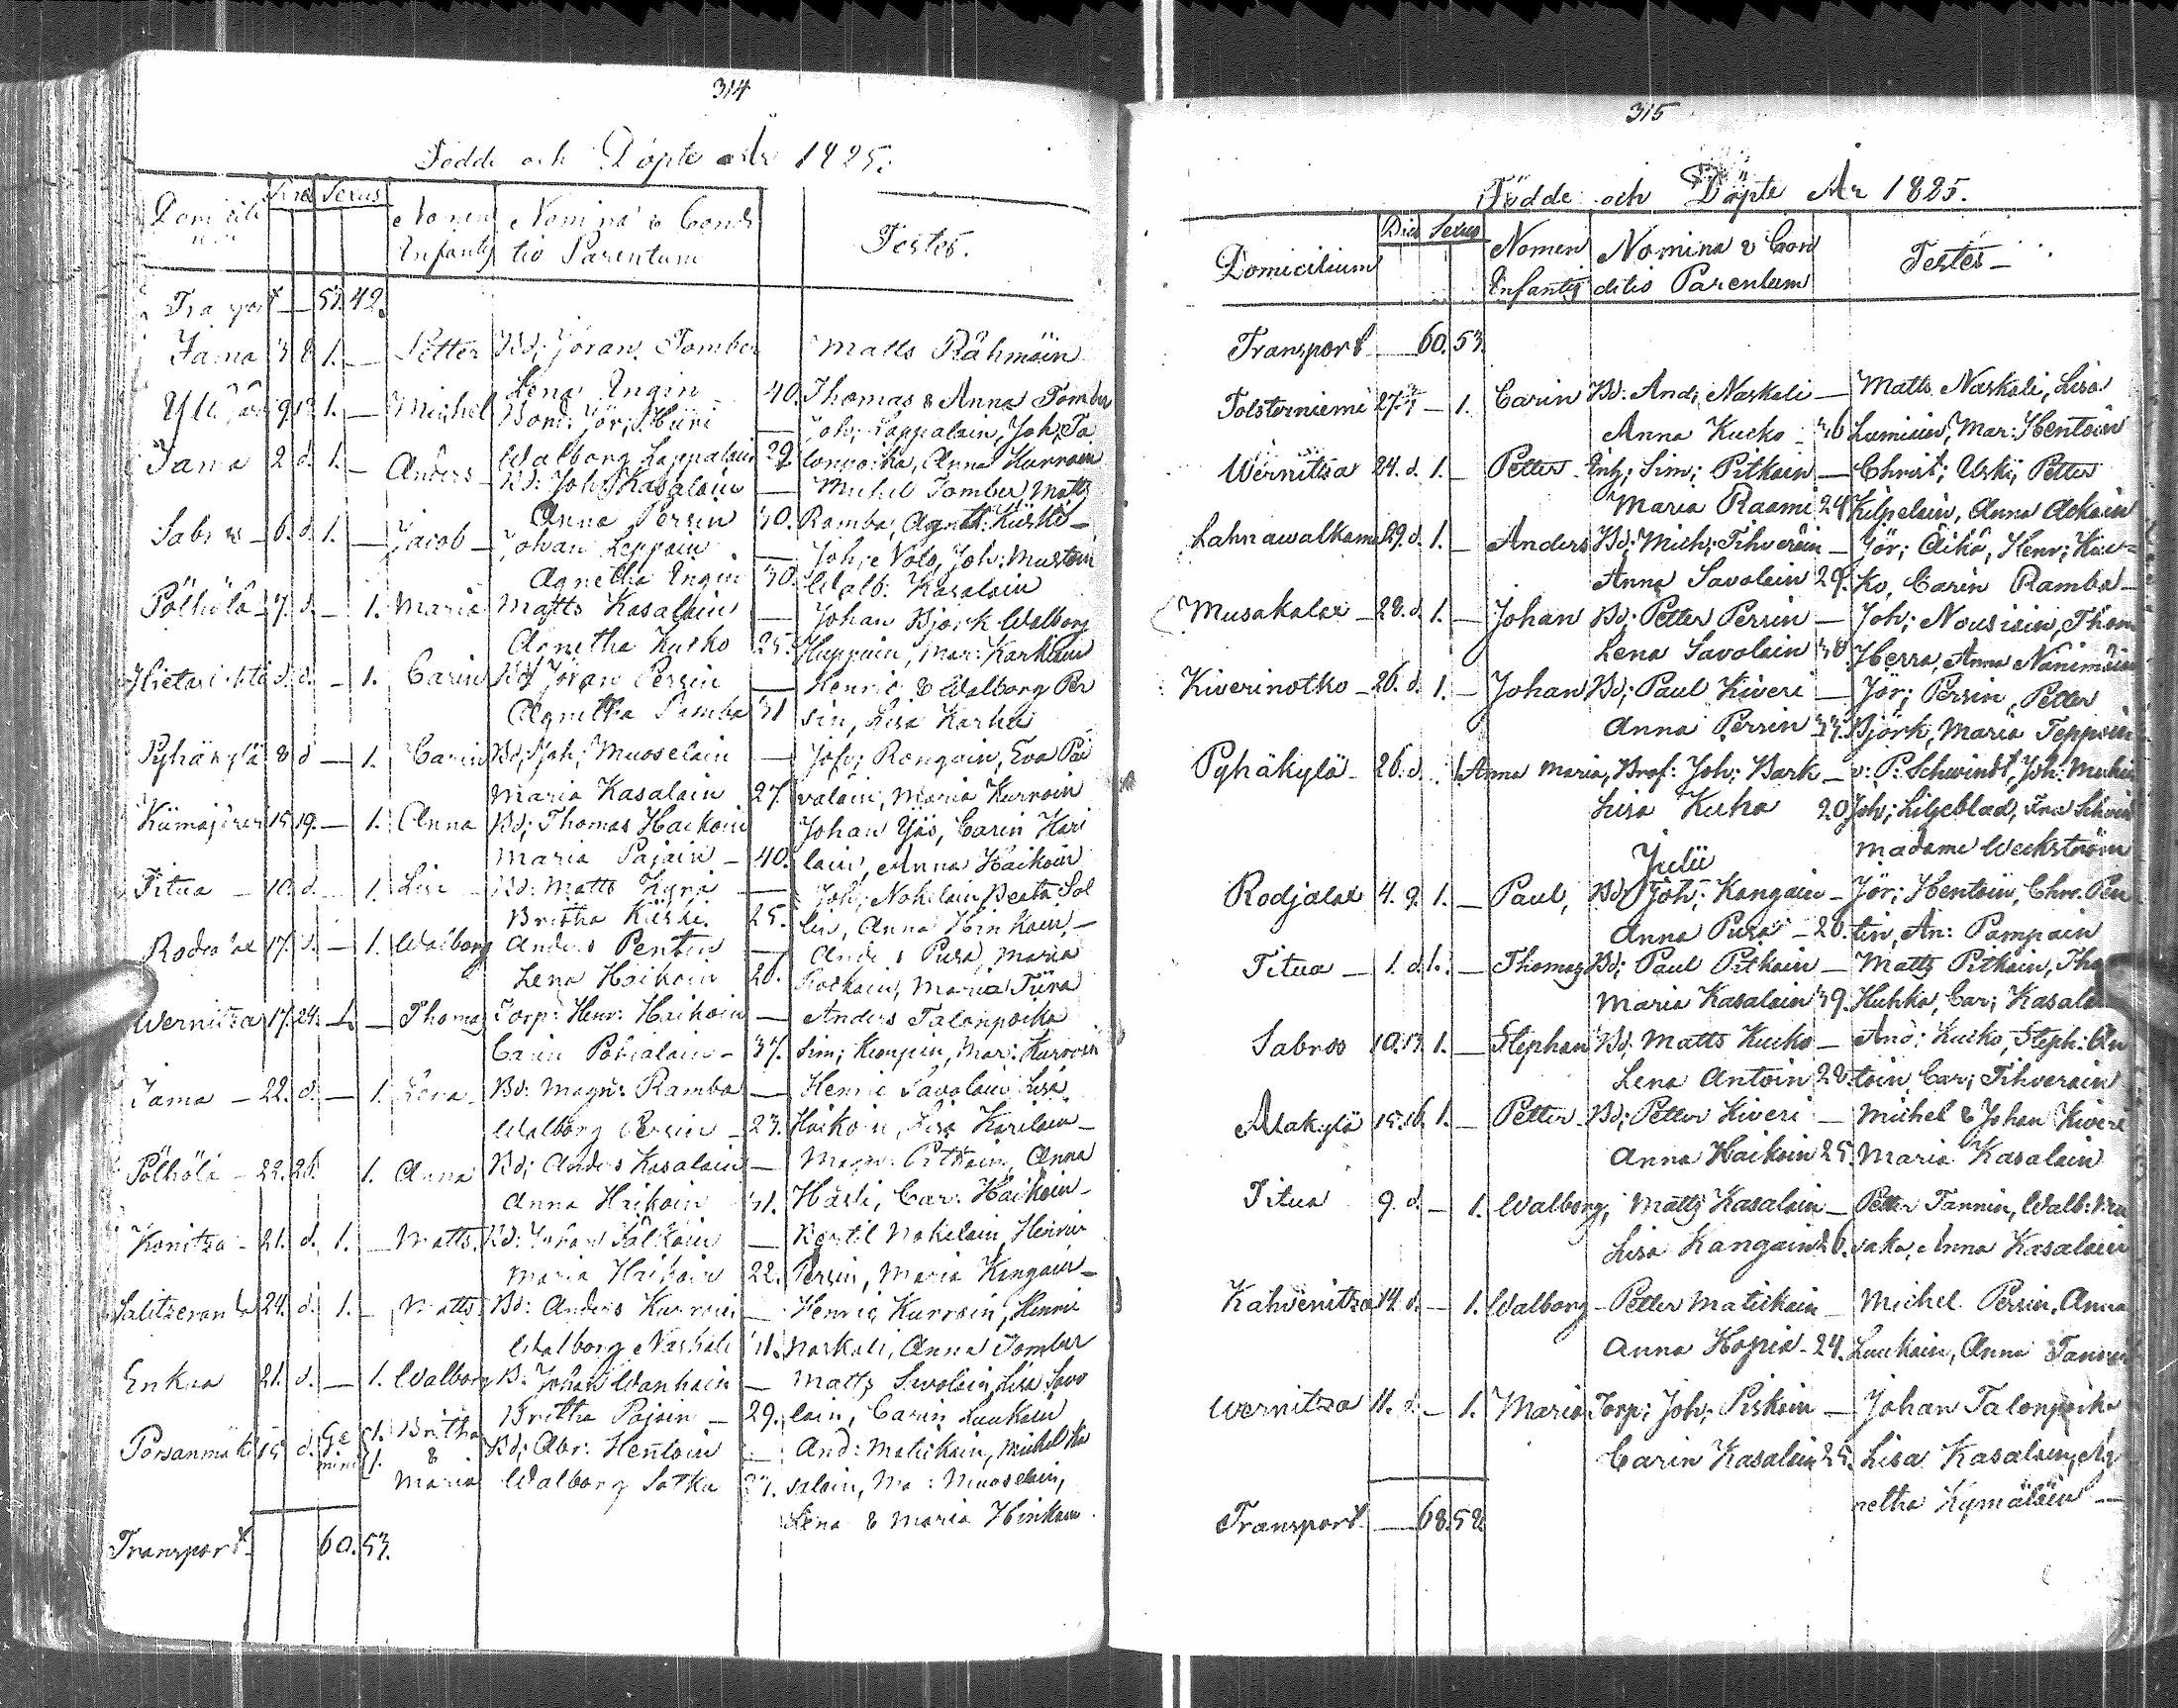 314
Födde och Döpte År 1825.
Domicili
um
Dies Sexus
Nomen
Infantis
Nomina & Condi
tio Parentum
Testes.
Transport — 53. 42.
Jama 3 8 1. — Petter Bd; Jöran Tomber Matts Rähmöin
Lena Ingin 40. Thomas & Anna Tomber
1. — Michel Bond: Jör; Hiiri — Joh; Lappalain, Joh; Ta
Walborg Lappalain 29. lonpoika, Anna Kurroin
Jama 2 d. 1. — Anders Bd: Joh; Kasalain — Michel Tomber, Matts
Anna Persin 30. Ramba, Agneth: Kiiski —
6. d. 1. — Jacob — Johan Leppain — Joh; Nolo, Joh: Muston
Agnetha Ingin 30. Walb: Kasalain
Pölhölä 7. d. — 1. Maria Matts Kasalain — Johan Björk Walborg
Agnetha Kucko 25. Huppoin, Mar: Karhuin
d. d. — 1. Carin Bd; Jöran Persin — Henric & Walborg Per
Agnetha Pamba 31 sin, Lisa Karhu
Pyhäkylä 8 d — 1. Carin Bd; Joh; Muoselain — Joh; Rongain, Eva Pai
Maria Kasalain 27. valain, Maria Kurroin
Kiimajärvi 15 19. — 1. Anna Bd; Thomas Haikoin Johan Yäs, Carin Kari
Maria Pajain — 40. lain, Anna Haikoin
Titua — 10. d. — 1. Lisa — Bd: Matts Kyrö — Joh; Nokelain Beata Sol
Britha Kiiski. 25. lin, Anna Hinkain. —
17. d. — 1. Walborg Anders Pentin — Anders Pusa, Maria
Lena Haikoin 20. Maria Tiina
Wernitza 17. 24. 1. — Thomas Torp: Henr: Haikoin — Anders Talonpoika
Carin Pohialain — 37. Sim; Mar: Kurroin
Jama — 22. d. — 1. Lena — Bd: Magn: Ramba — Henric Savolain Lisa
Walborg Persin — 23. Haikoin, Lisa Karilain —
Pölhölä — 22. 26. 1. Anna Bd; Anders Kasalain — Magn: Pitkain, Anna
Anna Haikoin 31. Häsli, Car: Haikoin —
Konitza — 21. d. 1. — Matts. Bd: Johan — Bertil Nokelain, Henric
Maria Haikoin 22. Persin, Maria Kangain —
24. d. 1. — Matts Bd: Anders Kurroin — Henric Kurroin, Henric
Walborg Naskali 31. Naskali, Anna Tomber
Enkua 21. d. — 1. Walborg B: Johan Wanhain — Matts Savolain, Lisa Savo
Britha Pajain — 29. lain, Carin Luukain
Porsanmäki 15 d. Ge mini 1. 1. Britha & Maria Bd; Abr: Hentoin — And: Matickain, Michel Ka
Walborg Sotka 37. salain, Ma: Muoselain,
Lena & Maria Hinkain.
Transport. 60. 53.
315
Födde och Döpte År 1825.
Domicilium
Dies Sexus
Nomen
Infantis
Nomina & Con
ditio Parentum
Testes —
Transport — 60. 53.
Tolsterniemi 27. — 1. Carin Bd: And; Naskali — Matts Naskali, Lisa
Anna Kucko — 36 Lumiuin, Mar: Hentoin
Wernitza 24. d. 1. — Petter Inh; Sim; Pitkain — Christ; Uski, Petter
Maria Raami 24 Kilpelain, Anna Ackain
Lahnawalkama 29. d. 1. — Anders Bd; Mich; Tihveräin — Jör; Äikä, Henr; Kuc-
Anna Savolain 29. ko, Carin Ramba —
Musakalax — 28. d. 1. — Johan Bd; Petter Persin — Joh; Nousiain, Thom
Lena Savolain 38. Herra, Anna Nänimäin
Kiverinotko — 26. d. 1. — Johan Bd; Paul Kiveri — Jör; Persin, Petter
Anna Persin 33. Björk, Maria Teppoin
Pyhäkylä — 26. d. 1. Anna Maria, Brof: Joh; Bark — v: P: Schwindt, Joh:
Lisa Kuha 20 Joh; Liljeblad, Fru Schwind
Madame Weckström
Julii
Rodjalax 4. 9. 1. — Paul, Bd; Joh; Kangain — Jör; Hentoin, Chr. Pen
Anna Pusa — 20. tin, An: Pampain
Titua — 1. d. 1. — Thomas Bd; Paul Pitkain — Matts Pitkain, Tho
Maria Kasalain 39. Kuhka, Car; Kasala
Sabroo 10. 13. 1. — Stephan Bd; Matts Kucko — And; Kucko, Steph: An
Lena Antoin 28. toin, Car; Tihverain
Alakylä 15. 16. 1. — Petter Bd; Petter Kiveri — Michel & Johan Kiveri
Anna Haikoin 25. Maria Kasalain
Titua 9. d. — 1. Walborg, Matts Kasalain — Petter Tannin, Walb:
Lisa Kangain 26. Anna Kasalain
Kahvenitza 14. d. — 1. Walborg — Petter Matickain — Michel Persin, Anna
Anna Hopia — 24. Luukain, Anna
Wernitza 11. d. — 1. Maria Torp; Joh; Piskoin — Johan Talonpoika
Carin Kasalain 25. Lisa Kasalain, Ag
netha Kymäläin —
Transport — 68. 58.